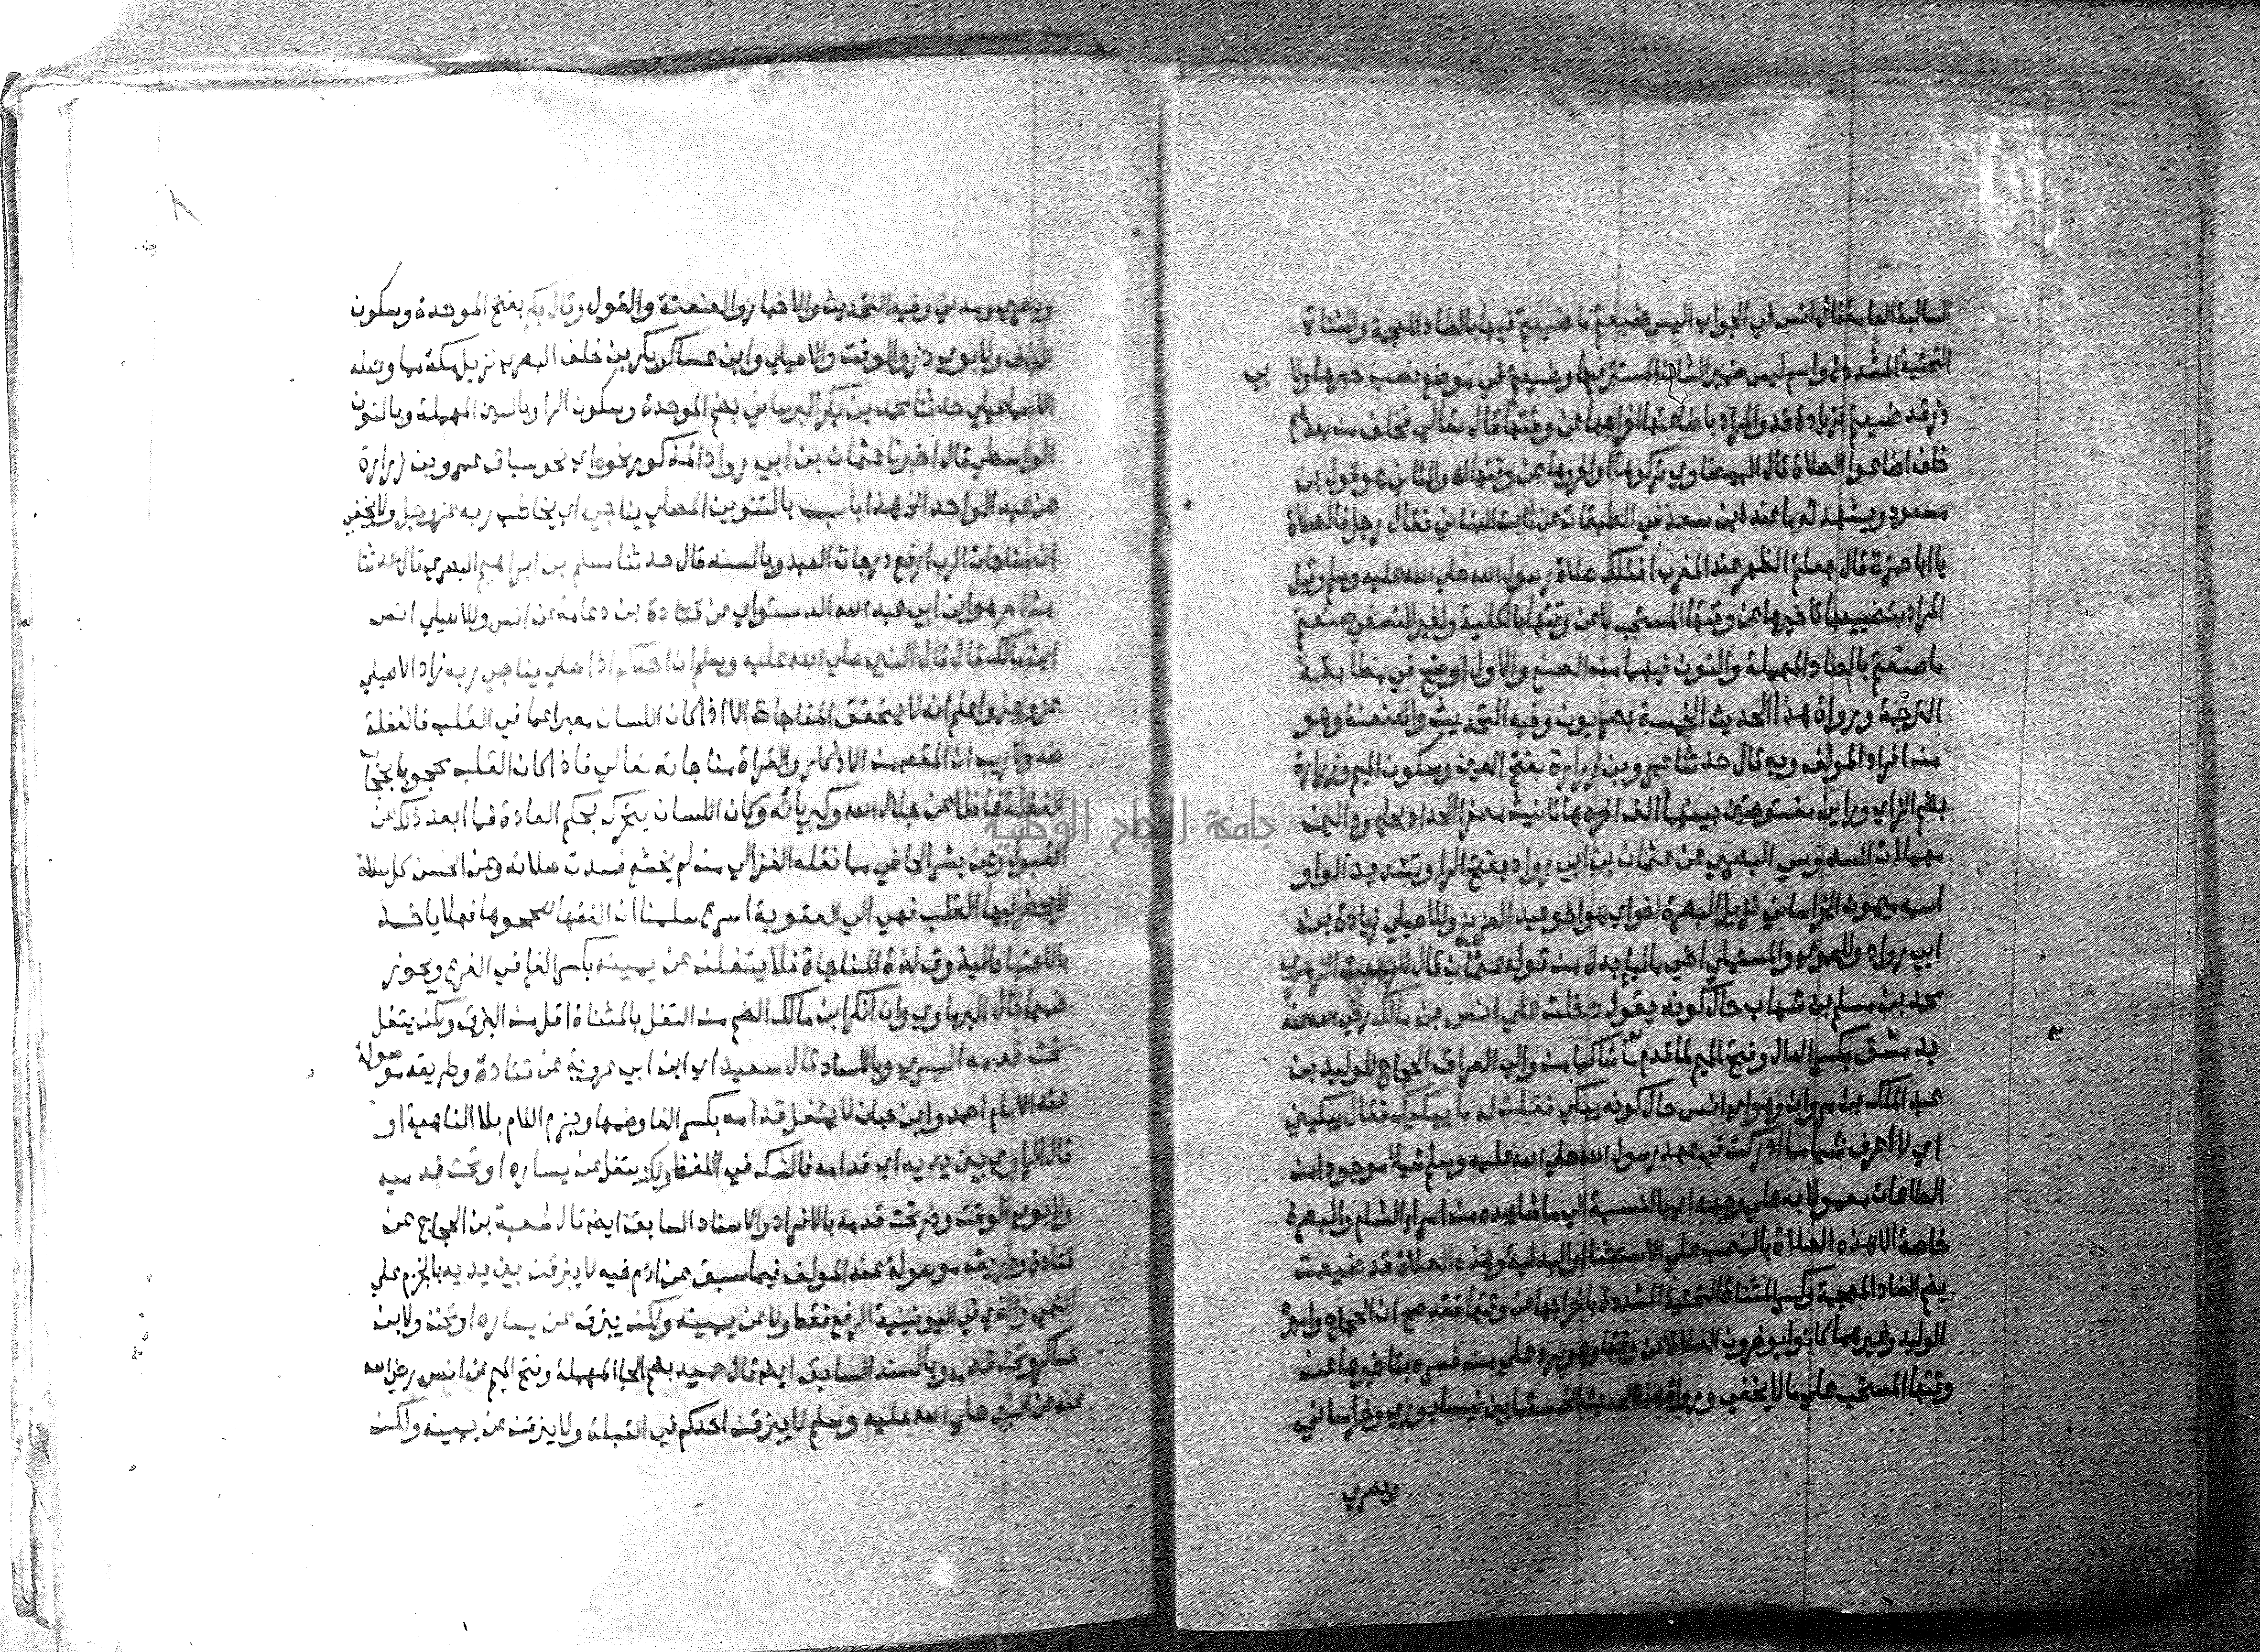 السالبة العامة قال انس في الجواب اليس ضيعتم ما ضيعتم فيها بالضاد المعجمة والمثناة
التحتية المشددة واسم ليس ضمير الشان المستتر فيها وضيعتم في موضع نصب خبرها ولا بي
ذر قد ضيعتم بزيادة قد والمراد باضاعتها اخراجها عن وقتها قال تعالي فخلف من بعدهم
خلف اضاعوا الصلاة قال البيضاوي تركوها او اخروها عن وقتها اه والثاني هو قول بن
مسعود ويشهد له ما عند ابن سعد في الطبقات عن ثابت البناني فقال رجل فالصلاة
يا ابا حمزة قال جعلتم الظهر عند المغرب افتلك صلاة رسول الله صلي الله عليه وسلم وقيل
المراد بتضييعها تاخيرها عن وقتها المستحب لا عن وقتها بالكلية ولغير النسفي صنعتم
ما صنعتم بالصاد المهملة والنون فيهما من الصنع والاول اوضح في مطابقة
الترجمة ورواة هذا الحديث الخمسة بصريون وفيه التحديث والعنعنة وهو
من افراد المولف وبه قال حدثنا عمرو بن زرارة بفتح العين وسكون الميم وزرارة
بضم الزاي وراين مفتوحتين بينهما الف اخره ها تانيث
مهملات السدوسي البصري عن عثمان بن ابي رواد بفتح الرا وتشديد الواو
اسمه ميمون الخراساني نزيل البصرة اخو اي هو اخو عبد العزيز وللاصيلي زيادة بن
ابي رواد وللحموي والمستملي اخي باليا بدل من قوله عثمان قال الزهري
محمد بن مسلم بن شهاب حال كونه يقول دخلت علي انس بن مالك رضي الله عنه
بدمشق بكسر الدال وفتح الميم لما قدم شاكيا من والي العراق الحجاج للوليد بن
عبد الملك بن مروان وهو اي انس حال كونه يبكي فقلت له ما يبكيك فقال يبكيني
اي لا اعرف شيا مما ادركت في عهد رسول الله صلي الله عليه وسلم شيا موجودا من
الطاعات معمولا به علي وجهه اي بالنسبة الي ما شاهده من امراء الشام والبصرة
خاصة الا هذه الصلاة بالنصب علي الاستثنا او البدلية وهذه الصلاة قد ضيعت
بضم الضاد المعجمة وكسر المثناة التحتية المشددة باخراجها عن وقتها فقد صح ان الحجاج واميره
الوليد وغيرهما كانوا يوخرون الصلاة عن وقتها وهو يرد علي من فسره بتاخيرها عن
وقتها المستحب علي ما لا يخفي ورواة هذا الحديث الخمسة ما بين نيسابوري وخراساني
وبصري
٨
وبصري ومدني وفيه التحديث والاخبار والعنعنة والقول وقال بكر بفتح الموحدة وسكون
الكاف ولابوي ذر والوقت والاصيلي وابن عساكر بكر بن خلف البصري نزيل مكة مما وصله
الاسماعيلي حدثنا محمد بن بكر البرساني بضم الموحدة وسكون الرا وبالسين المهملة وبالنون
الواسطي قال اخبرنا عثمان بن ابي رواد المذكور نحوه اي نحو سياق عمرو بن زرارة
عن عبد الواحد الخ هذا باب بالتنوين المصلي يناجي اي يخاطب ربه عز وجل ولا يخفي
ان مناجات الرب ارفع درجات العبد وبالسند قال حدثنا مسلم بن ابراهيم البصري قال حدثنا
هشام هو ابن ابي عبد الله الدستواي عن قتادة بن دعامة عن انس وللاصيلي انس
ابن مالك قال قال النبي صلي الله عليه وسلم ان احدكم اذا صلي يناجي ربه زاد الاصيلي
عز وجل واعلم انه لا يتحقق المناجاة الا اذا كان اللسان معبرا عما في القلب فالغفلة
ضد ولا ريب ان المقصد من الاذكار والقراة مناجاته تعالي فاذا كان القلب محجوبا بحجاب
الغفلة غافلا عن جلال الله وكبريائه وكان اللسان يتحرك بحكم العادة فما ابعد ذلك عن
القبول وعن بشر الحافي مما نقله الغزالي من لم يخشع فسدت صلاته وعن الحسن كل صلاة
لا يحضر فيها القلب فهي الي العقوبة اسرع سلمنا ان الفقها صححوها فهلا ياخذ
بالاحتياط ليذوق لذة المناجاة فلا يتفلن عن يمينه بكسر الفا في الفرع ويجوز
ضمها قال البرماوي وان انكر ابن مالك الضم من التفل بالمثناة اقل من البزق ولكن يتفل
تحت قدمه اليسري وبالاسناد قال سعيد اي ابن ابي عروبة عن قتادة وطريقه موصولة
عند الامام احمد وابن حبان لا يتفل قدامه بكسر الفا وضمها وبجزم اللام بلا الناهية او
قال الراوي بين يديه اي قدامه فالشك في اللفظ ولكن يتفل عن يساره او تحت قدميه
ولابوي الوقت وذر تحت قدمه بالافراد والاسناد السابق ايضا قال شعبة بن الحجاج عن
قتادة وطريقه موصولة عند المولف فيما سبق عن ادم فيه لا يبزقن بين يديه بالجزم علي
النهي والذي في اليونينية الرفع فقط ولا عن يمينه ولكن يبزق عن يساره او تحت ولابن
عساكر وتحت قدمه وبالسند السابق ايضا قال حميد بضم الحا المهملة وفتح الميم عن انس رضي الله
عنه عن النبي صلي الله عليه وسلم لا يبزقن احدكم في القبلة ولا يبزقن عن يمينه ولكن
جامعة النجاح الوطنية